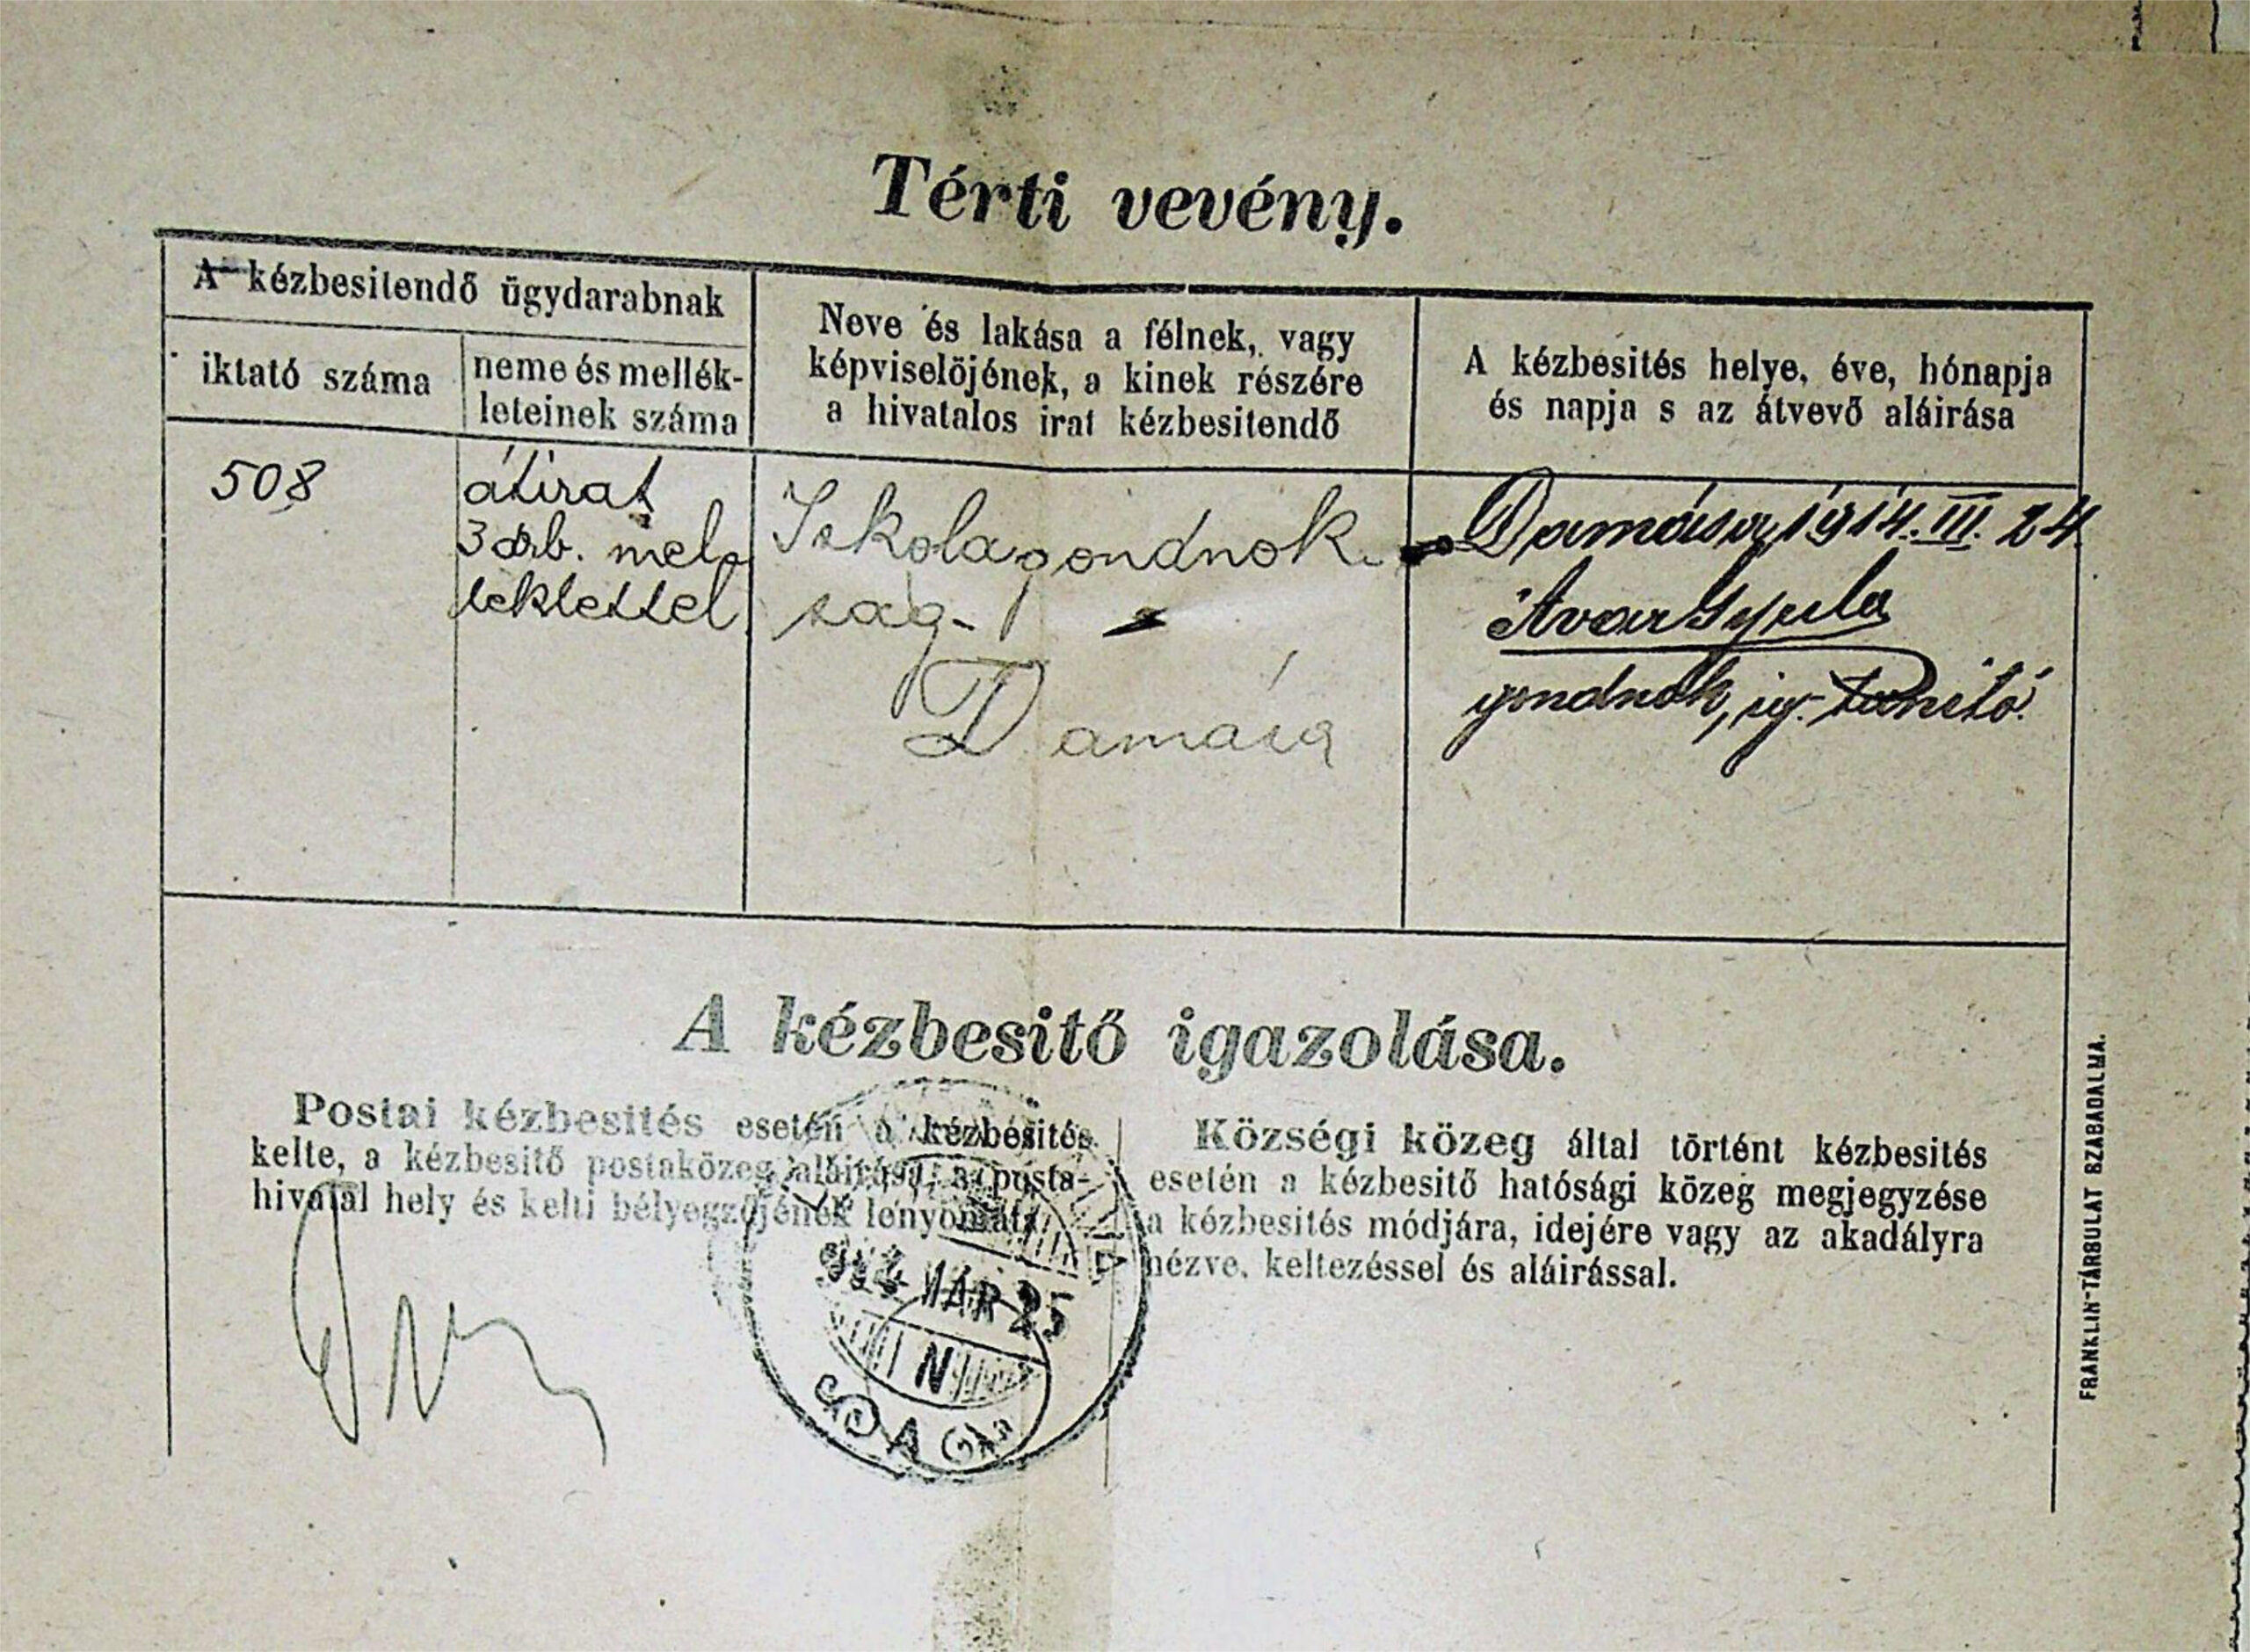 Térti vevény.
A kézbesitendő ügydarabnak
iktató száma
neme és mellék-
leteinek száma
Neve és lakása a félnek, vagy
képviselőjének, a kinek részére
a hivatalos irat kézbesitendő
A kézbesités helye, éve, hónapja
és napja s az átvevő aláirása
508
átirat
3 drb. mel-
leklettel
Iskolagondnok-
ság.
Damása
Damása, 1914. III. 24.
Avar Gyula
gondnok, ig. tanító.
A kézbesitő igazolása.
Postai kézbesités esetén a kézbesités
kelte, a kézbesitő postaközeg aláirása, a posta-
hivatal hely és kelti bélyegzőjének lenyomata.
Községi közeg által történt kézbesités
esetén a kézbesitő hatósági közeg megjegyzése
a kézbesités módjára, idejére vagy az akadályra
nézve, keltezéssel és aláirással.
914 MÁR 25
N
SÁG
FRANKLIN-TÁRSULAT SZABADALMA.